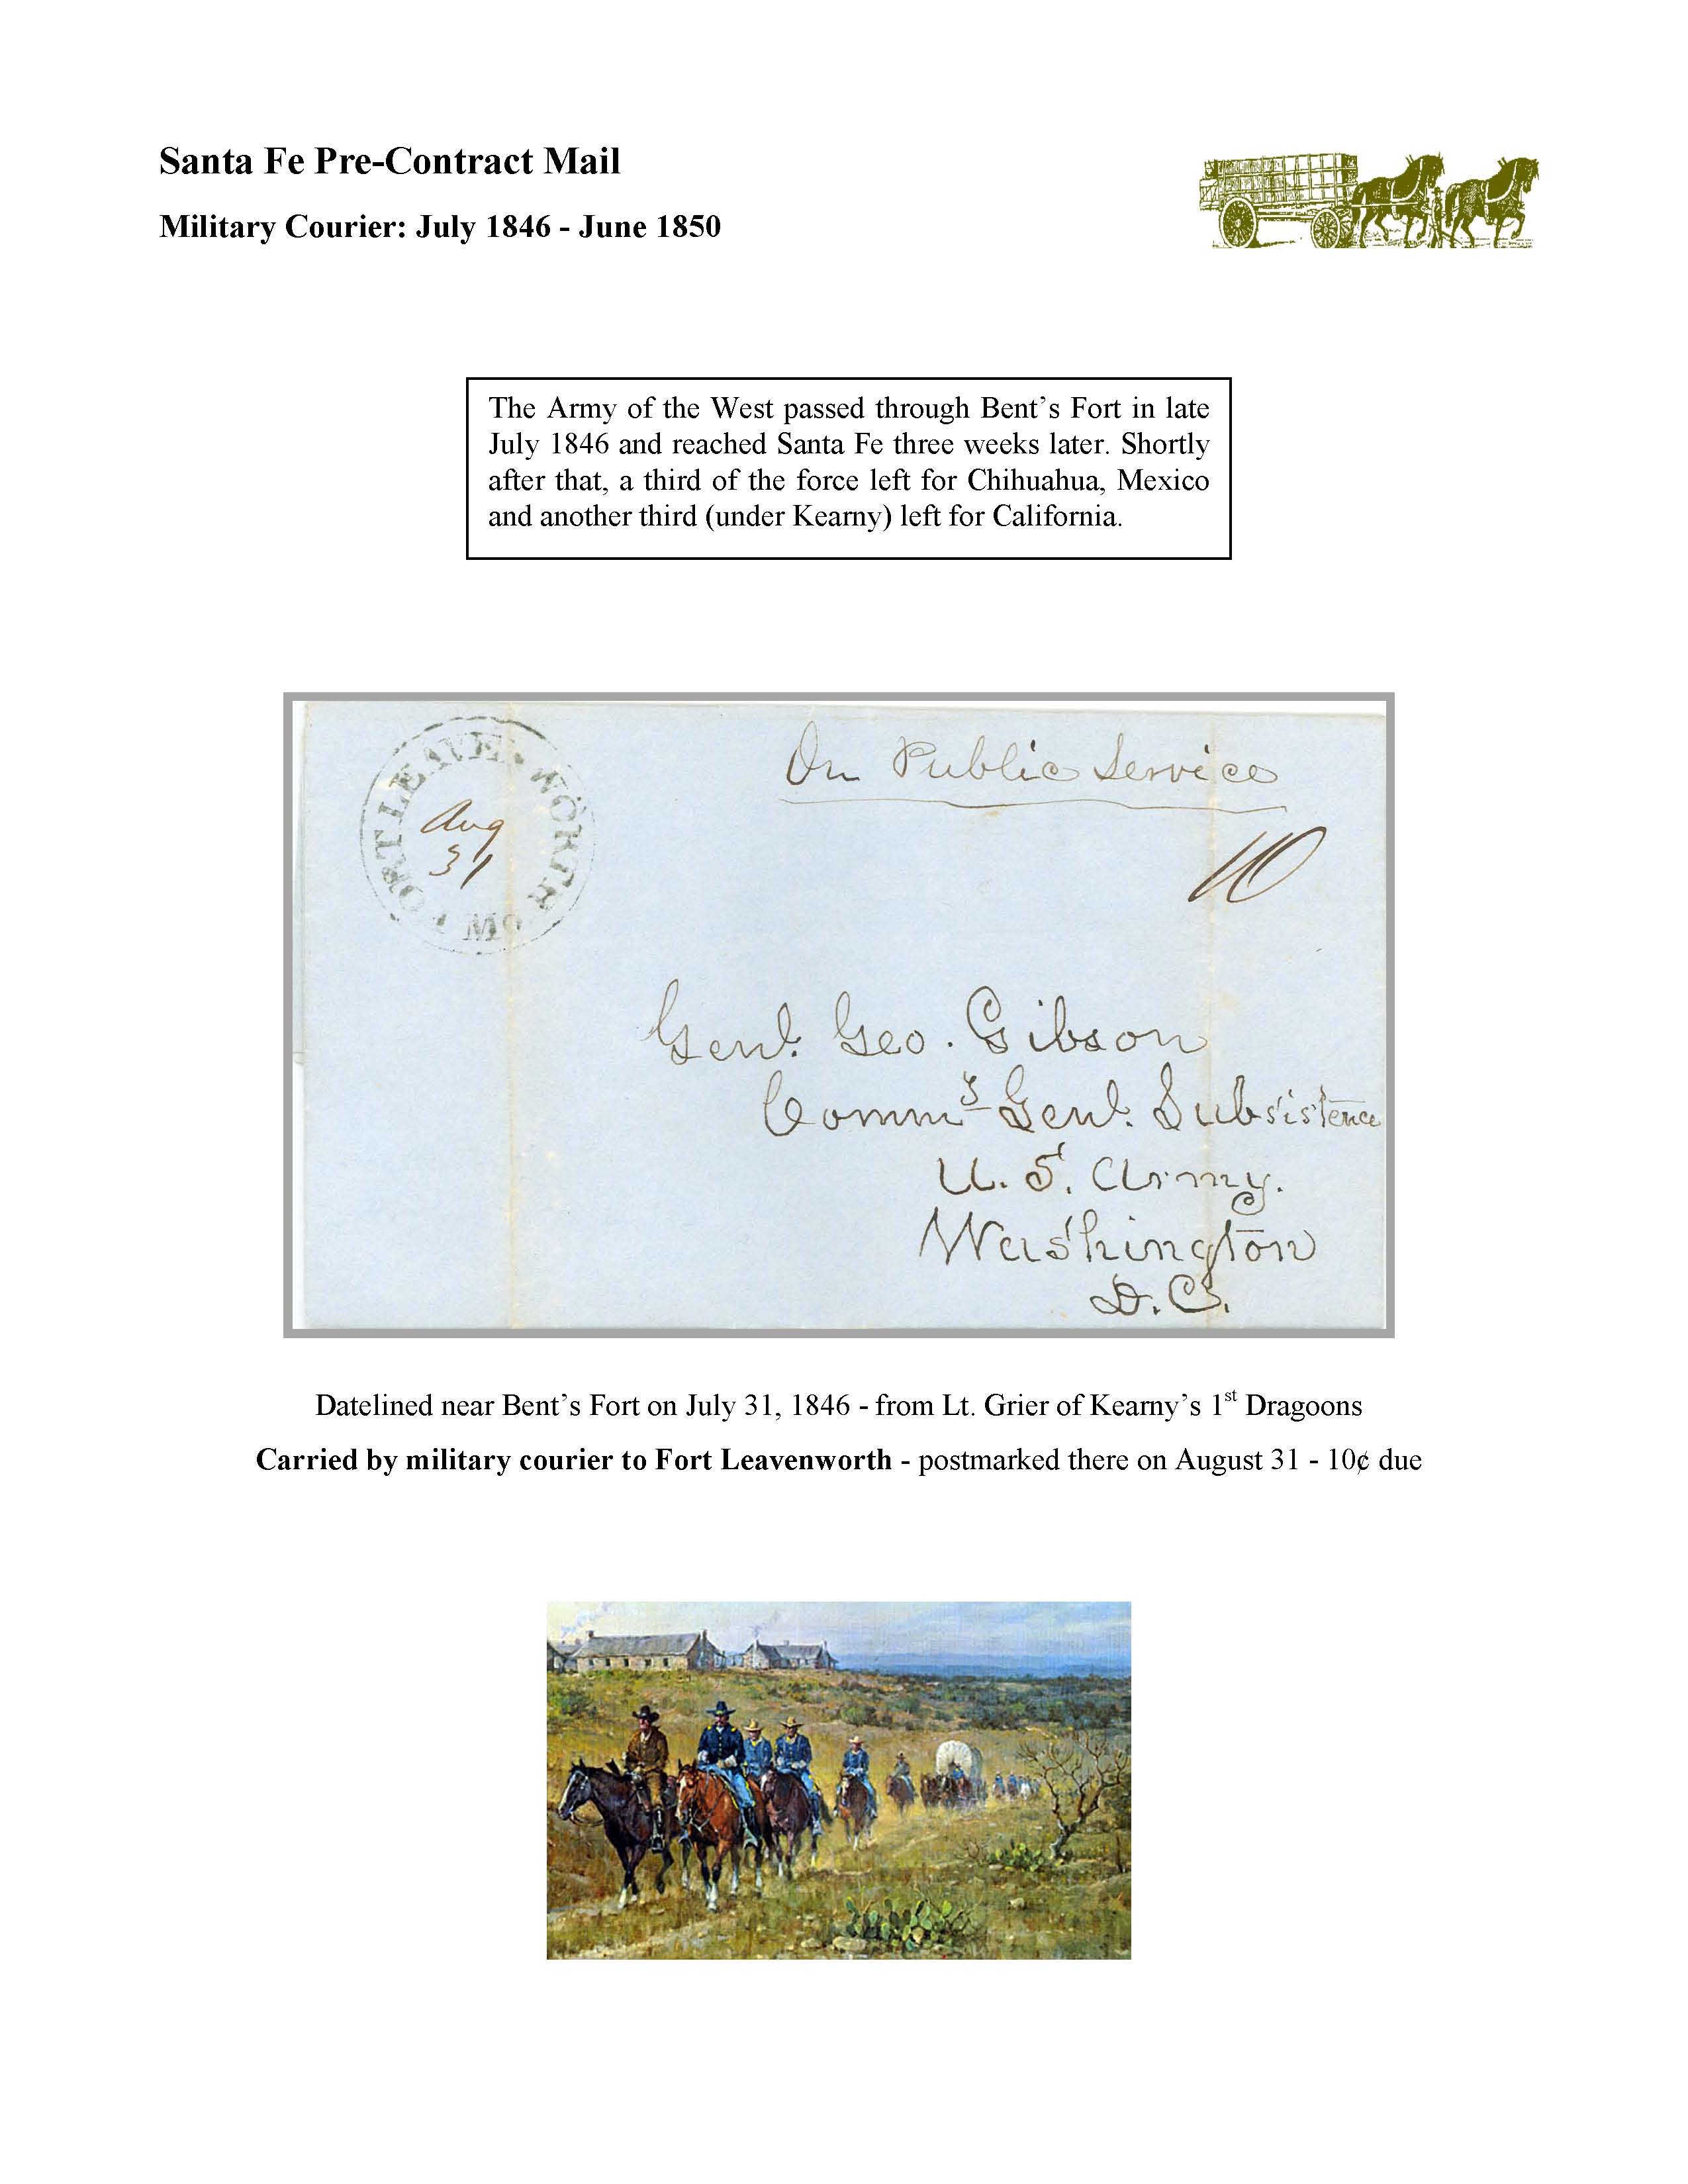 Santa Fe Pre-Contract Mail
Military Courier: July 1846 - June 1850
The Army of the West passed through Bent's Fort in late
July 1846 and reached Santa Fe three weeks later. Shortly
after that, a third of the force left for Chihuahua, Mexico
and another third (under Kearny) left for California.
FORT LEAVENWORTH MO
Aug
31
On Public Service
10
Genl. Geo. Gibson
Commy Genl. Subsistence
U. S. Army.
Washington
D.C.
Datelined near Bent's Fort on July 31, 1846 - from Lt. Grier of Kearny's 1st Dragoons
Carried by military courier to Fort Leavenworth - postmarked there on August 31 - 10¢ due